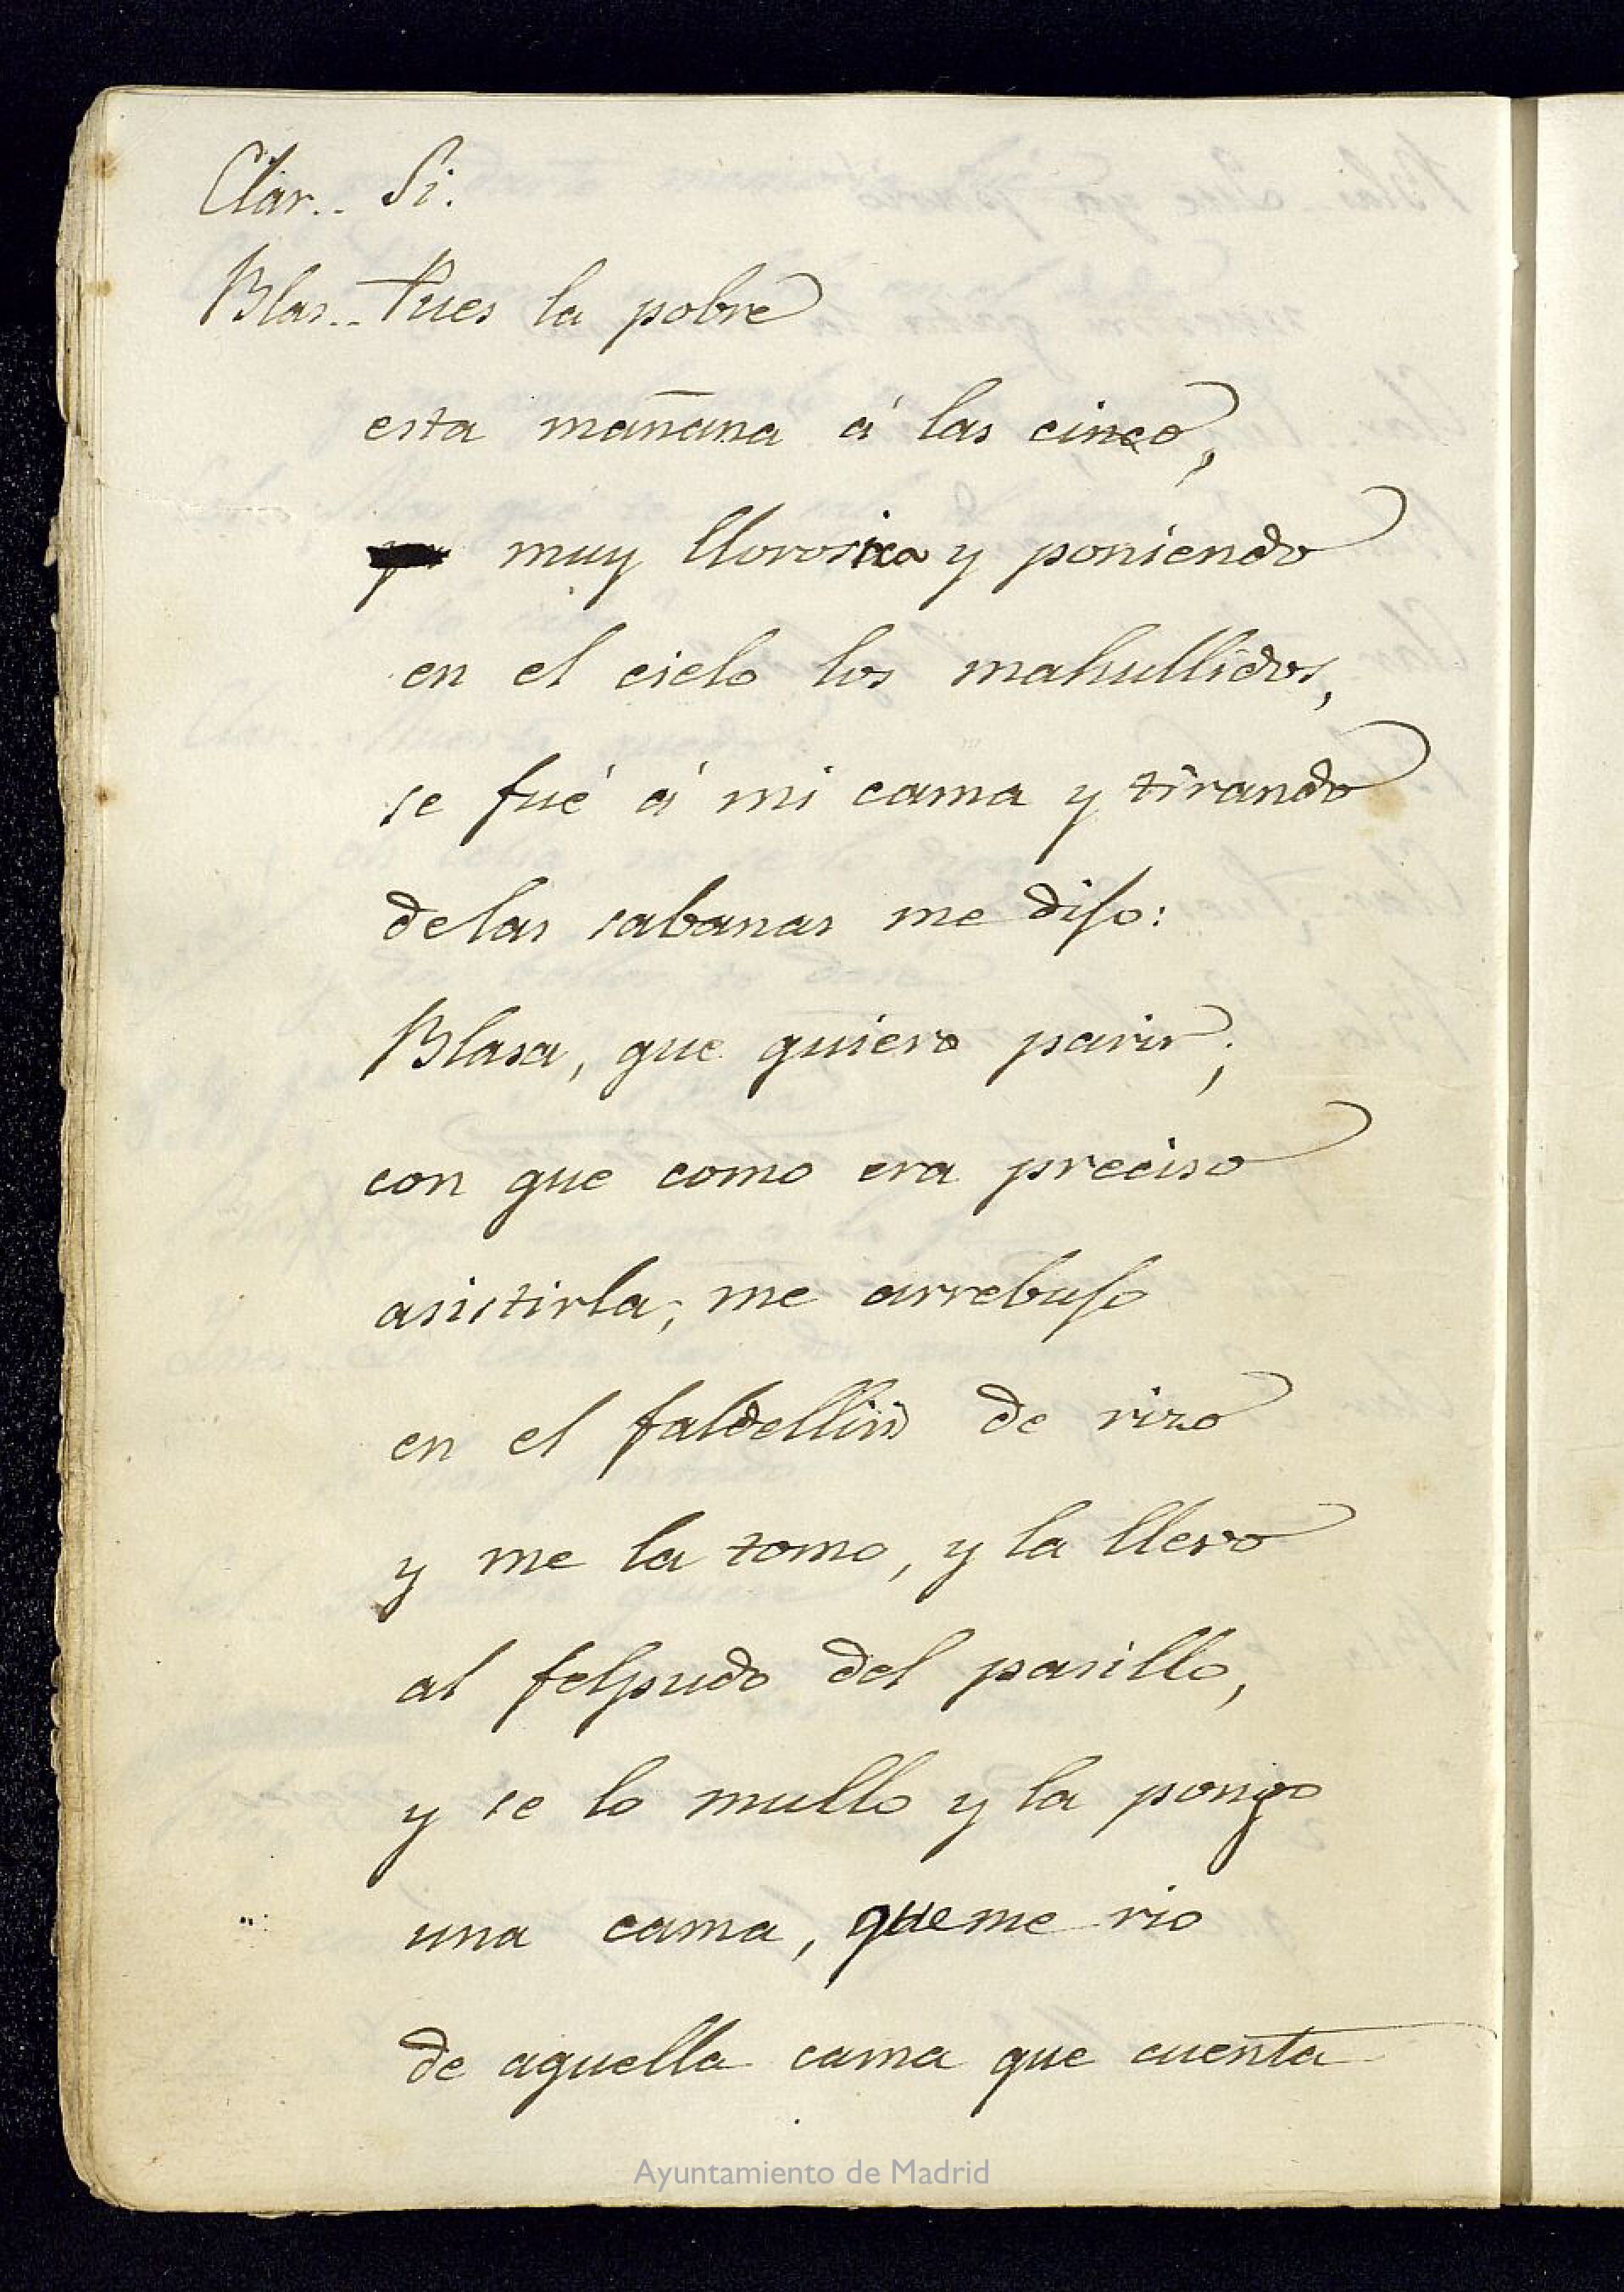 Clar.. Si.
Blas.. Pues la pobre
esta mañana á las cinco,
muy llorosica y poniendo
en el cielo los mahullidos,
se fué á mi cama y tirando
delas sabanas me dijo:
Blasa, que quiero parir;
con que como era preciso
asistirla; me arrebujo
en el faldellin de rizo
y me la tomo, y la llevo
al felpudo del pasillo,
y se lo mullo y la pongo
una cama, que me rio
de aquella cama que cuenta
Ayuntamiento de Madrid